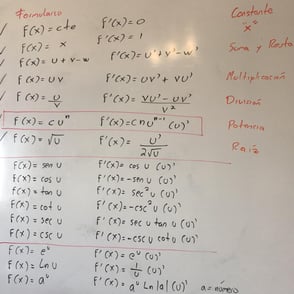 Formulario
Constante
f(x) = cte    f'(x) = 0
x^n
f(x) = x    f'(x) = 1
Suma y Resta
f(x) = u + v - w    f'(x) = u' + v' - w'
f(x) = uv    f'(x) = uv' + vu'    Multiplicación
f(x) = u/v    f'(x) = (vu' - uv')/v²    División
f(x) = cuⁿ    f'(x) = cnuⁿ⁻¹ (u)'    Potencia
f(x) = √u    f'(x) = u'/(2√u)    Raíz
f(x) = sen u    f'(x) = cos u (u)'
f(x) = cos u    f'(x) = -sen u (u)'
f(x) = tan u    f'(x) = sec² u (u)'
f(x) = cot u    f'(x) = -csc² u (u)'
f(x) = sec u    f'(x) = sec u tan u (u)'
f(x) = csc u    f'(x) = -csc u cot u (u)'
f(x) = eᵘ    f'(x) = eᵘ (u)'
f(x) = Ln u    f'(x) = 1/u (u)'
f(x) = aᵘ    f'(x) = aᵘ Ln |a| (u)'    a = número